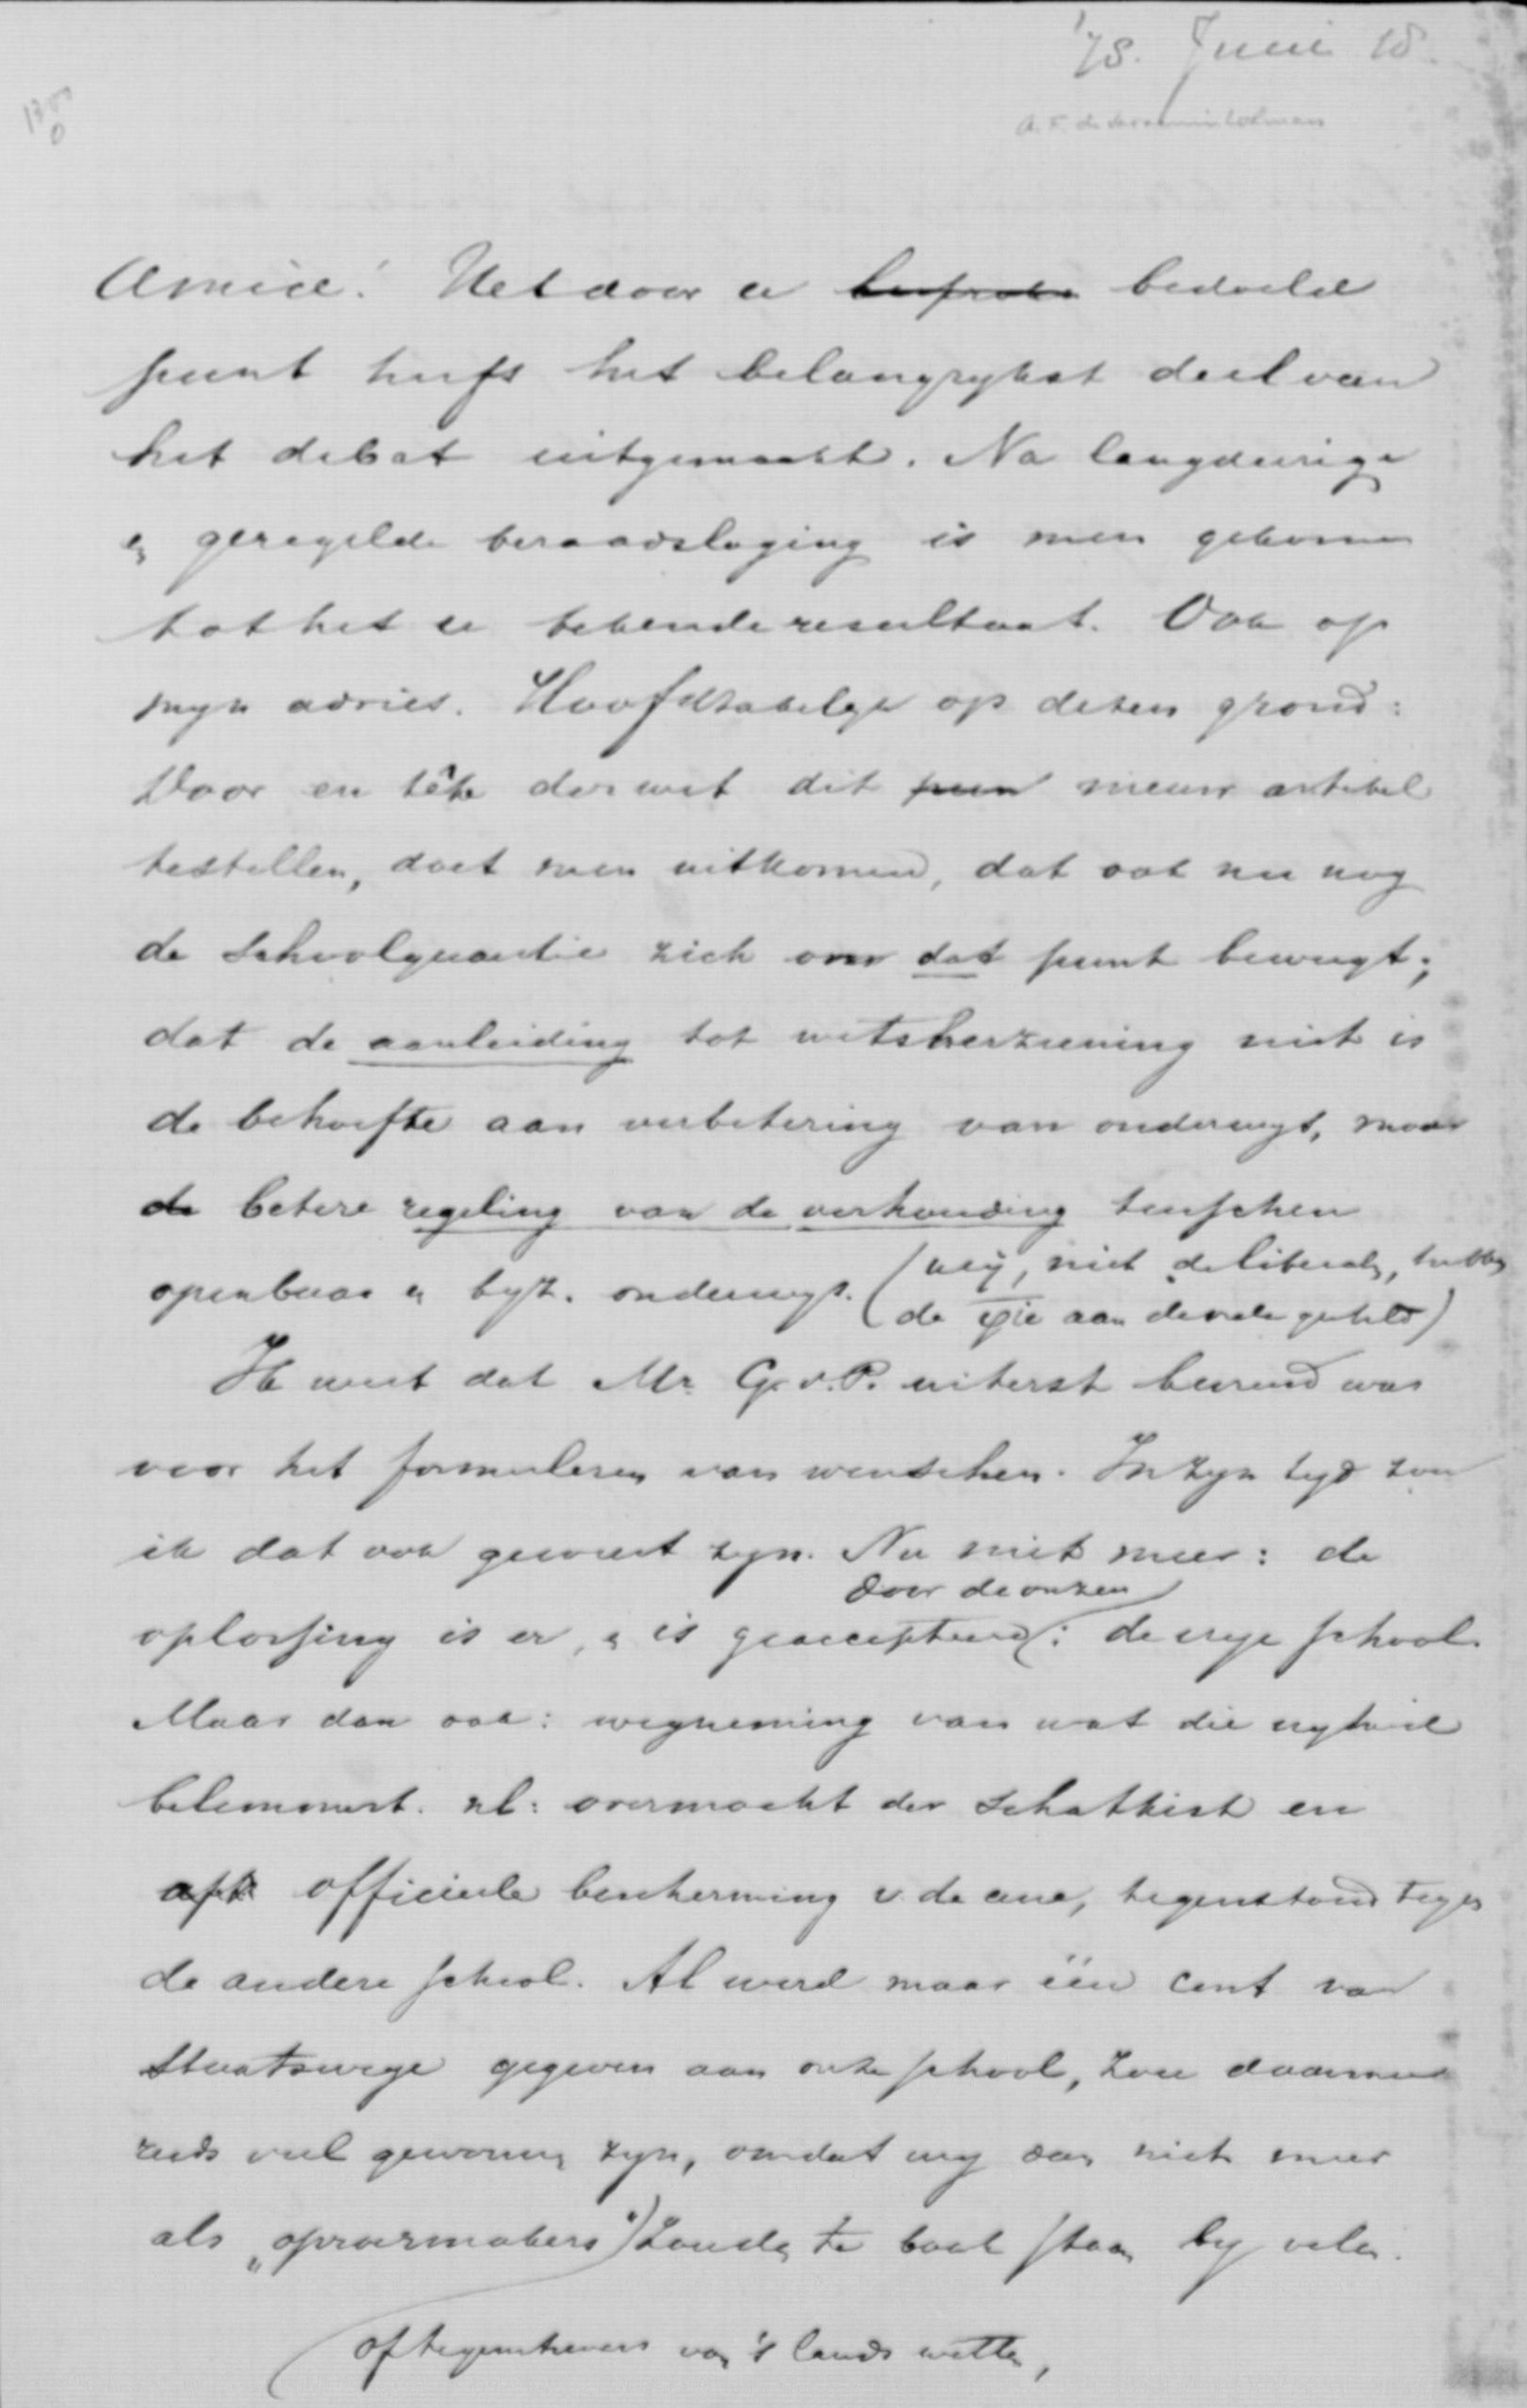 '78. Juni 18.
A. F. de Savornin Lohman
Amice! Het door u besproken bedoeld
punt heeft het belangrykst deel van
het debat uitgemaakt. Na langdurige
en geregelde beraadslaging is men gekomen
tot het u bekende resultaat. Ook op
myn advies. Hoofdzakelyk op dezen grond:
Door en tête der wet dit pun nieuw artikel
te stellen, doet men uitkomen, dat ook nu nog
de schoolquaestie zich om dat punt beweegt;
dat de aanleiding tot wetsherziening niet is
de behoefte aan verbetering van onderwys, maar
de betere regeling van de verhouding tusschen
openbaar en byz. onderwys. (wij, niet de liberalen, hebben
de qie aan de orde gesteld)
Ik weet dat Mr. G. v. P. uiterst bevreesd was
voor het formuleren van wenschen. In zyn tyd zou
ik dat ook geweest zyn. Nu niet meer: de
door de onzen
oplossing is er, en is geaccepteerd: de vrye school.
Maar dan ook: wegneming van wat die vryheid
belemmert. nl: overmacht der schatkist en
officieele bescherming v. de eene, tegenstand tegen
de andere school. Al werd maar één cent van
Staatswege gegeven aan onze school, zou daarmee
reeds veel gewonnen zyn, omdat wy dan niet meer
als „oproermakers" zouden te boek staan by velen.
of tegenstrevers van 's lands wetten,